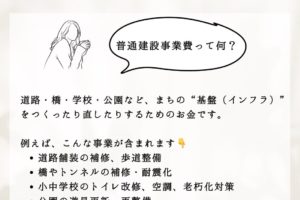 普通建設事業費って何？
道路・橋・学校・公園など、まちの“基盤（インフラ）”
をつくったり直したりするためのお金です。
例えば、こんな事業が含まれます👇
• 道路舗装の補修、歩道整備
• 橋やトンネルの補修・耐震化
• 小中学校のトイレ改修、空調、老朽化対策
• 公園の遊具更新、再整備